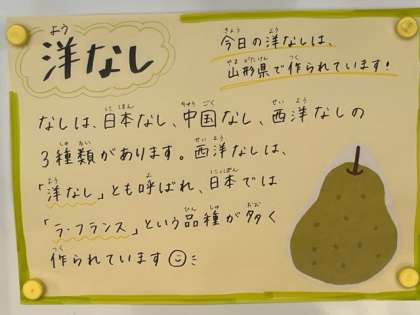 洋なし
今日の洋なしは、
山形県で作られています!
なしは、日本なし、中国なし、西洋なしの
3種類があります。西洋なしは、
「洋なし」とも呼ばれ、日本では
「ラ・フランス」という品種が多く
作られています